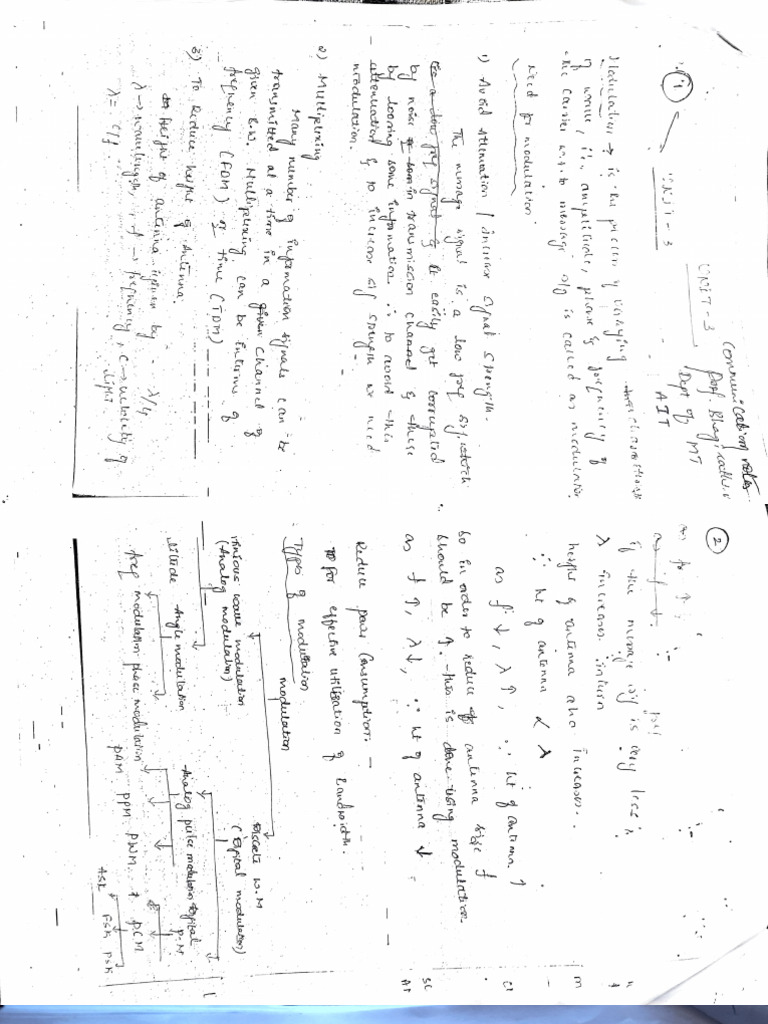 Communication notes
Prof. Bhagirathi
Dept of MT
AIT
UNIT-3
UNIT-3
1
Modulation → is the process of varying
of wave, i.e., amplitude, phase & frequency of
the carrier w.r.to message sig is called as modulation
need for modulation.
1) Avoid attenuation / increase signal strength.
The message signal is a low freq sig which
be easily get corrupted
by noise in transmission channel & these
by loosing some information. ∴ to avoid this
attenuation & to increase sig strength we need
modulation.
2) Multiplexing
Many number of information signals can be
transmitted at a time in a given channel of
given B.W. Multiplexing can be interms of
frequency (FDM) or time (TDM)
3) To Reduce height of Antenna
Height of antenna is given by λ/4
λ → wavelength, f → frequency, c → velocity of
light
λ = c/f
2
if the message sig is very less ∴
λ increases inturn
height of antenna also increases.
∴ ht of antenna ∝ λ
as f ↓, λ ↑, ∴ ht of antenna ↑
so in order to reduce antenna size f
should be ↑. this is done using modulation
as f ↑, λ ↓, ∴ ht of antenna ↓
Reduce power consumption:-
for effective utilisation of bandwidth.
Types of modulation
modulation
tinious wave modulation
(Analog modulation)
Discrete W.M
litude Angle modulation
Analog pulse modulation
P.M
freq modulation phase modulation
PAM PPM PWM PCM
ASK FSK PSK